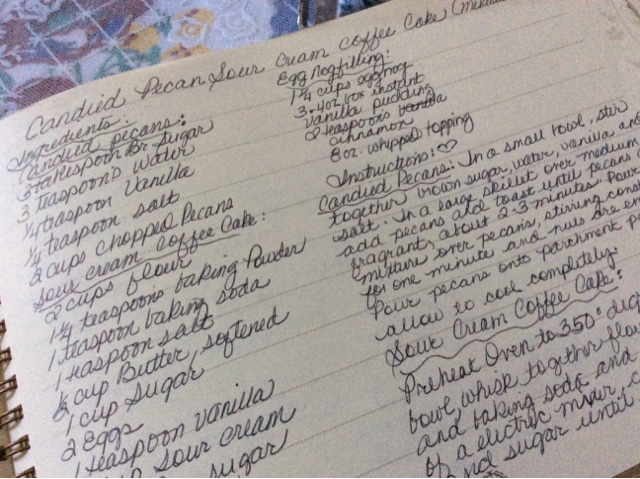 Candied Pecan Sour Cream Coffee Cake
Ingredients:
Candied pecans:
3 tablespoon Br. Sugar
3 teaspoons water
1/4 teaspoon Vanilla
1/4 teaspoon salt
2 cups chopped Pecans
Sour cream coffee Cake:
2 cups flour
1 1/4 teaspoons baking Powder
1 teaspoon baking soda
1 teaspoon salt
cup Butter, softened
1 cup Sugar
2 Eggs
1 teaspoon vanilla
Sour cream
sugar
Egg Nog filling:
1 1/4 cups eggnog
3.4oz box instant
vanilla pudding
2 teaspoons
cinnamon
8 oz. whipped topping
Instructions: ♡
Candied Pecans: In a small bowl, stir
together brown sugar, water, vanilla and
salt. In a large skillet over medium
add pecans and toast until pecans
fragrant, about 2-3 minutes. Pour
mixture over pecans, stirring
for one minute and nuts are
Pour pecans onto parchment
allow to cool completely.
Sour Cream Coffee Cake:
Preheat Oven to 350°
bowl, whisk together
and baking soda and
of a electric mixer,
and sugar until